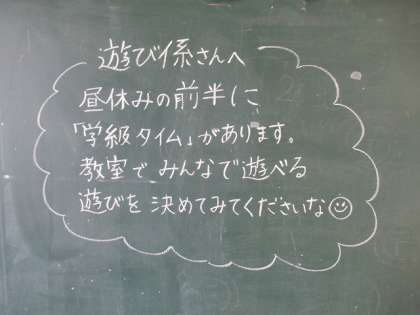 遊び係さんへ
昼休みの前半に
「学級タイム」があります。
教室でみんなで遊べる
遊びを決めてみてくださいな☺